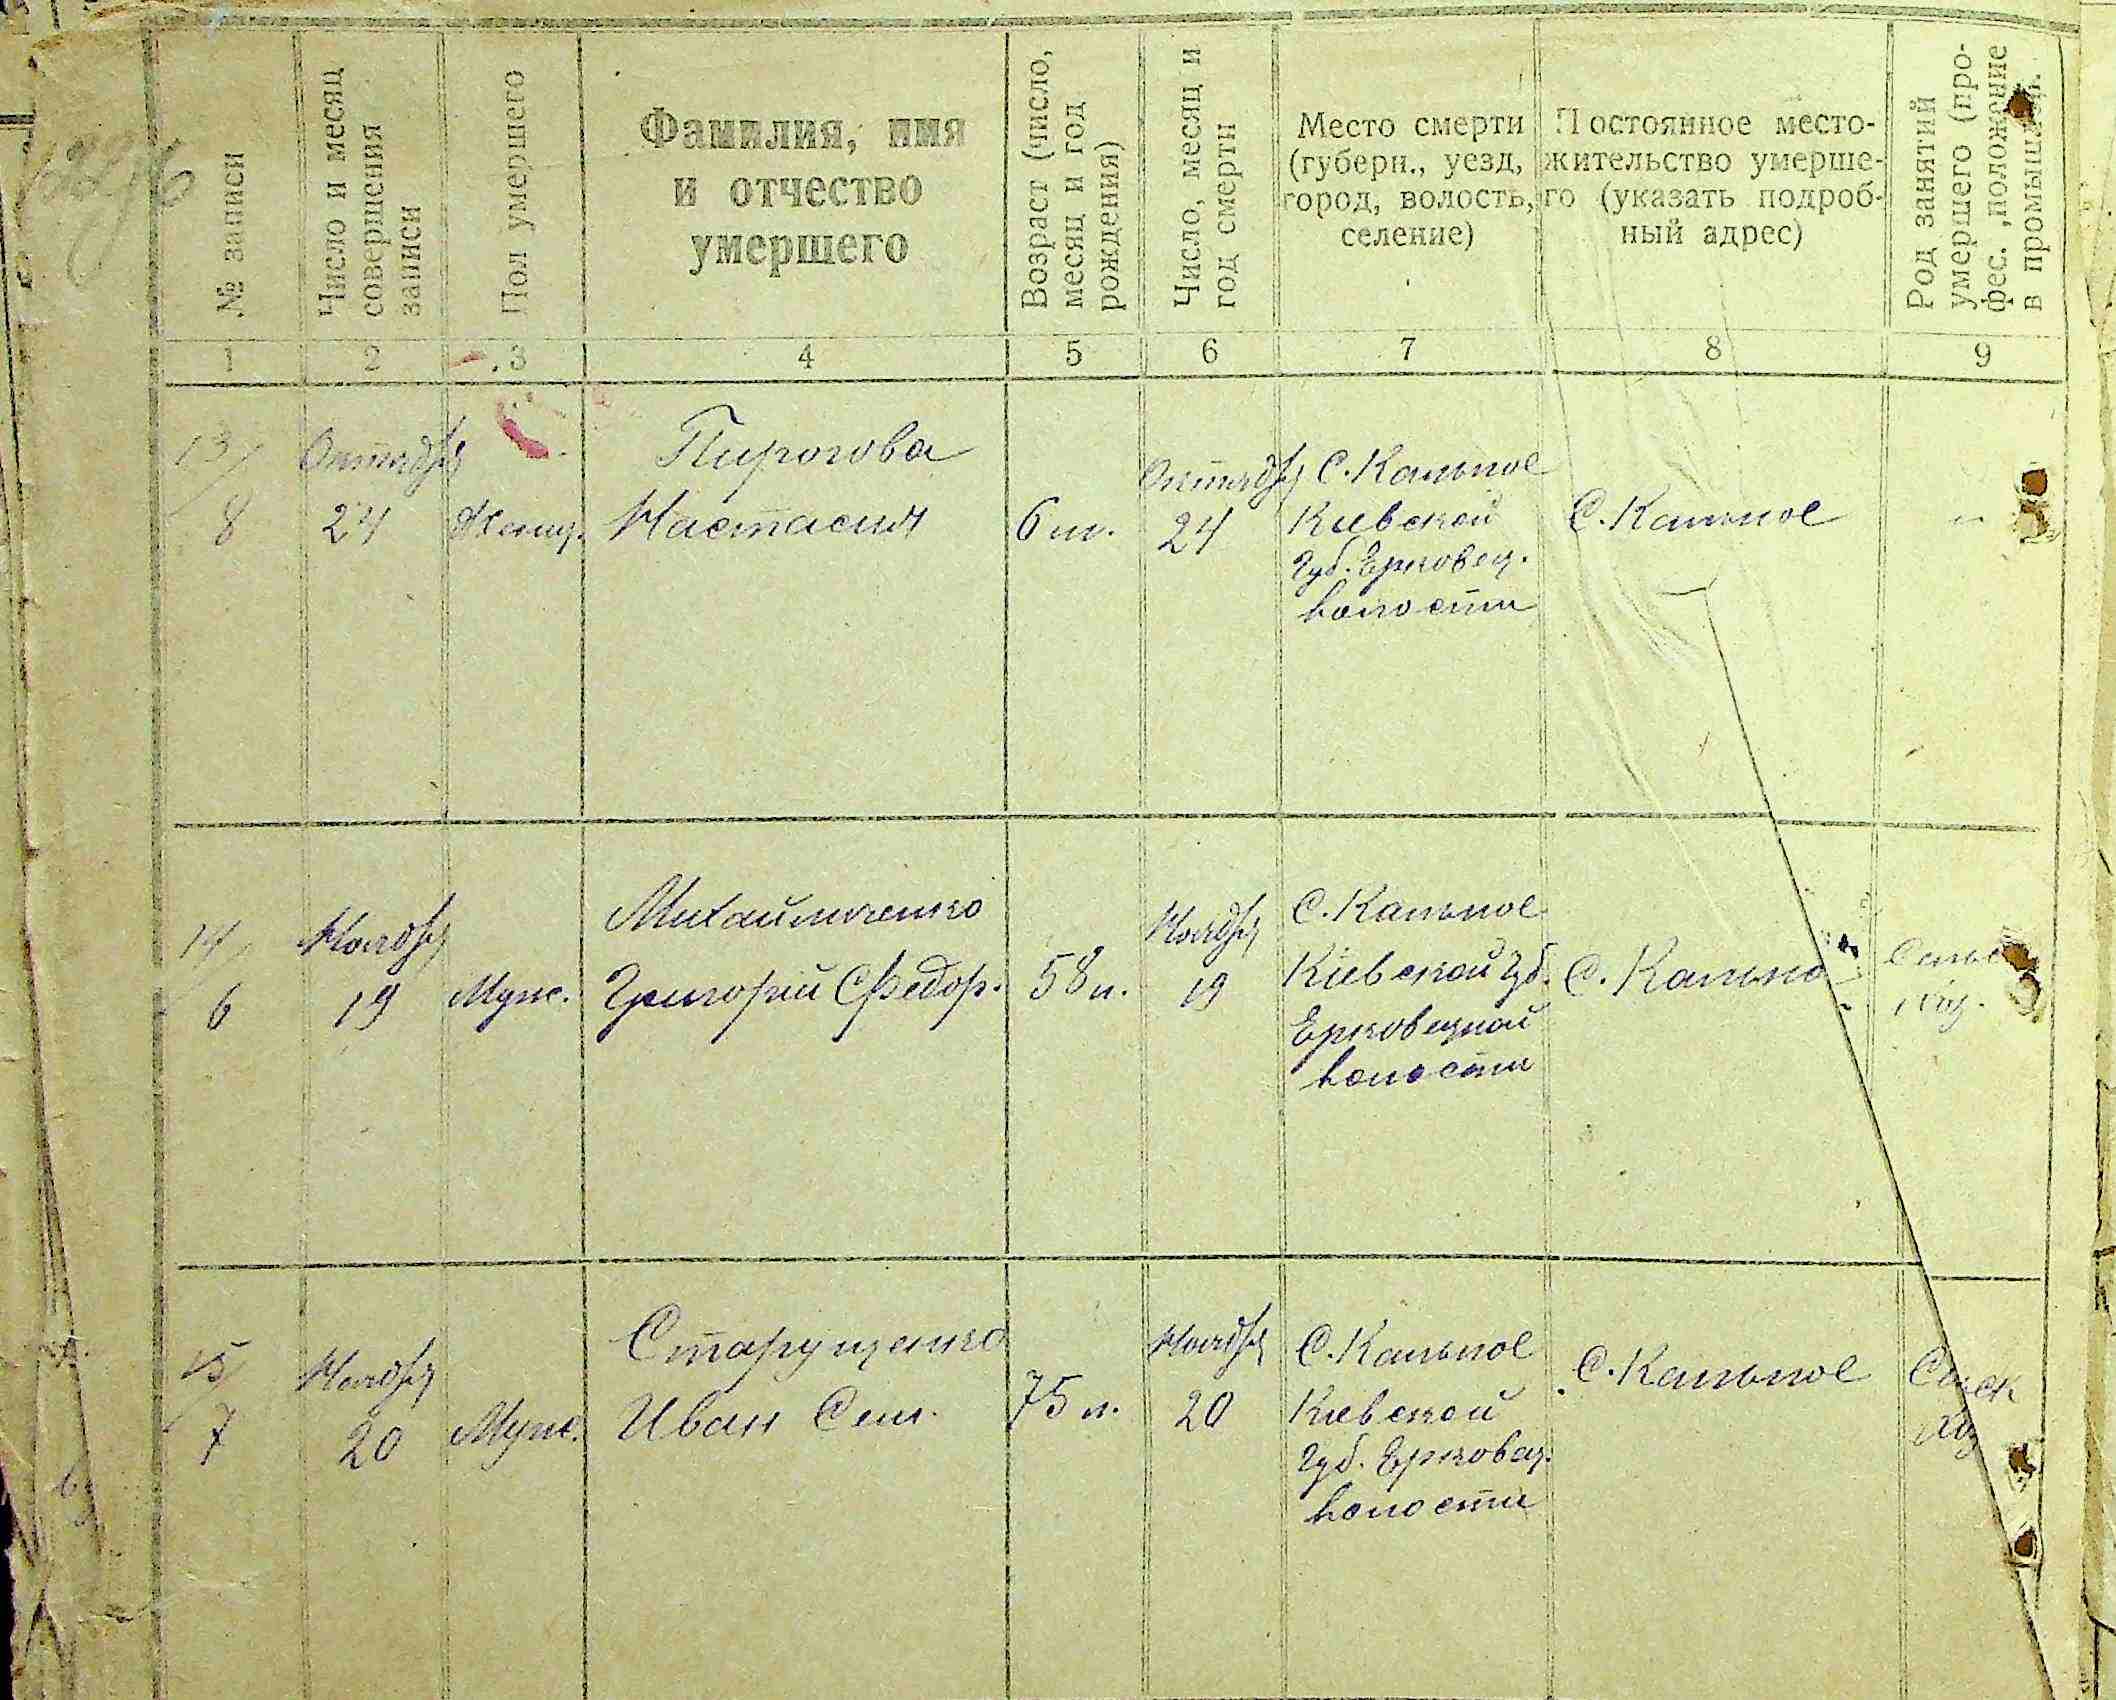 № записи
Число и месяц
совершения
записи
Пол умершего
Фамилия, имя
и отчество
умершего
Возраст (число,
месяц и год
рождения)
Число, месяц и
год смерти
Место смерти
(губерн., уезд,
город, волость,
селение)
Постоянное место-
жительство умерше-
го (указать подроб-
ный адрес)
Род занятий
умершего (про-
фес., положение
в промышлен.
1 2 3 4 5 6 7 8 9
13/
8
Октября
24
Женщ.
Пирогова
Настасия
6 м.
Октября
24
С. Кальное
Киевской
Губ. Ерковец.
волости
С. Кальное
"
14/
6
Ноября
19
Муж.
Михайличенко
Григорій Федор.
58 л.
Ноября
19
С. Кальное
Кіевской Губ.
Ерковецкой
волости
С. Кально
Сельс
Хоз.
15/
7
Ноября
20
Муж.
Старущенко
Иван Сем.
75 л.
Ноября
20
С. Кальное
Киевской
Губ. Ерковец.
волости
С. Кальное
Хоз